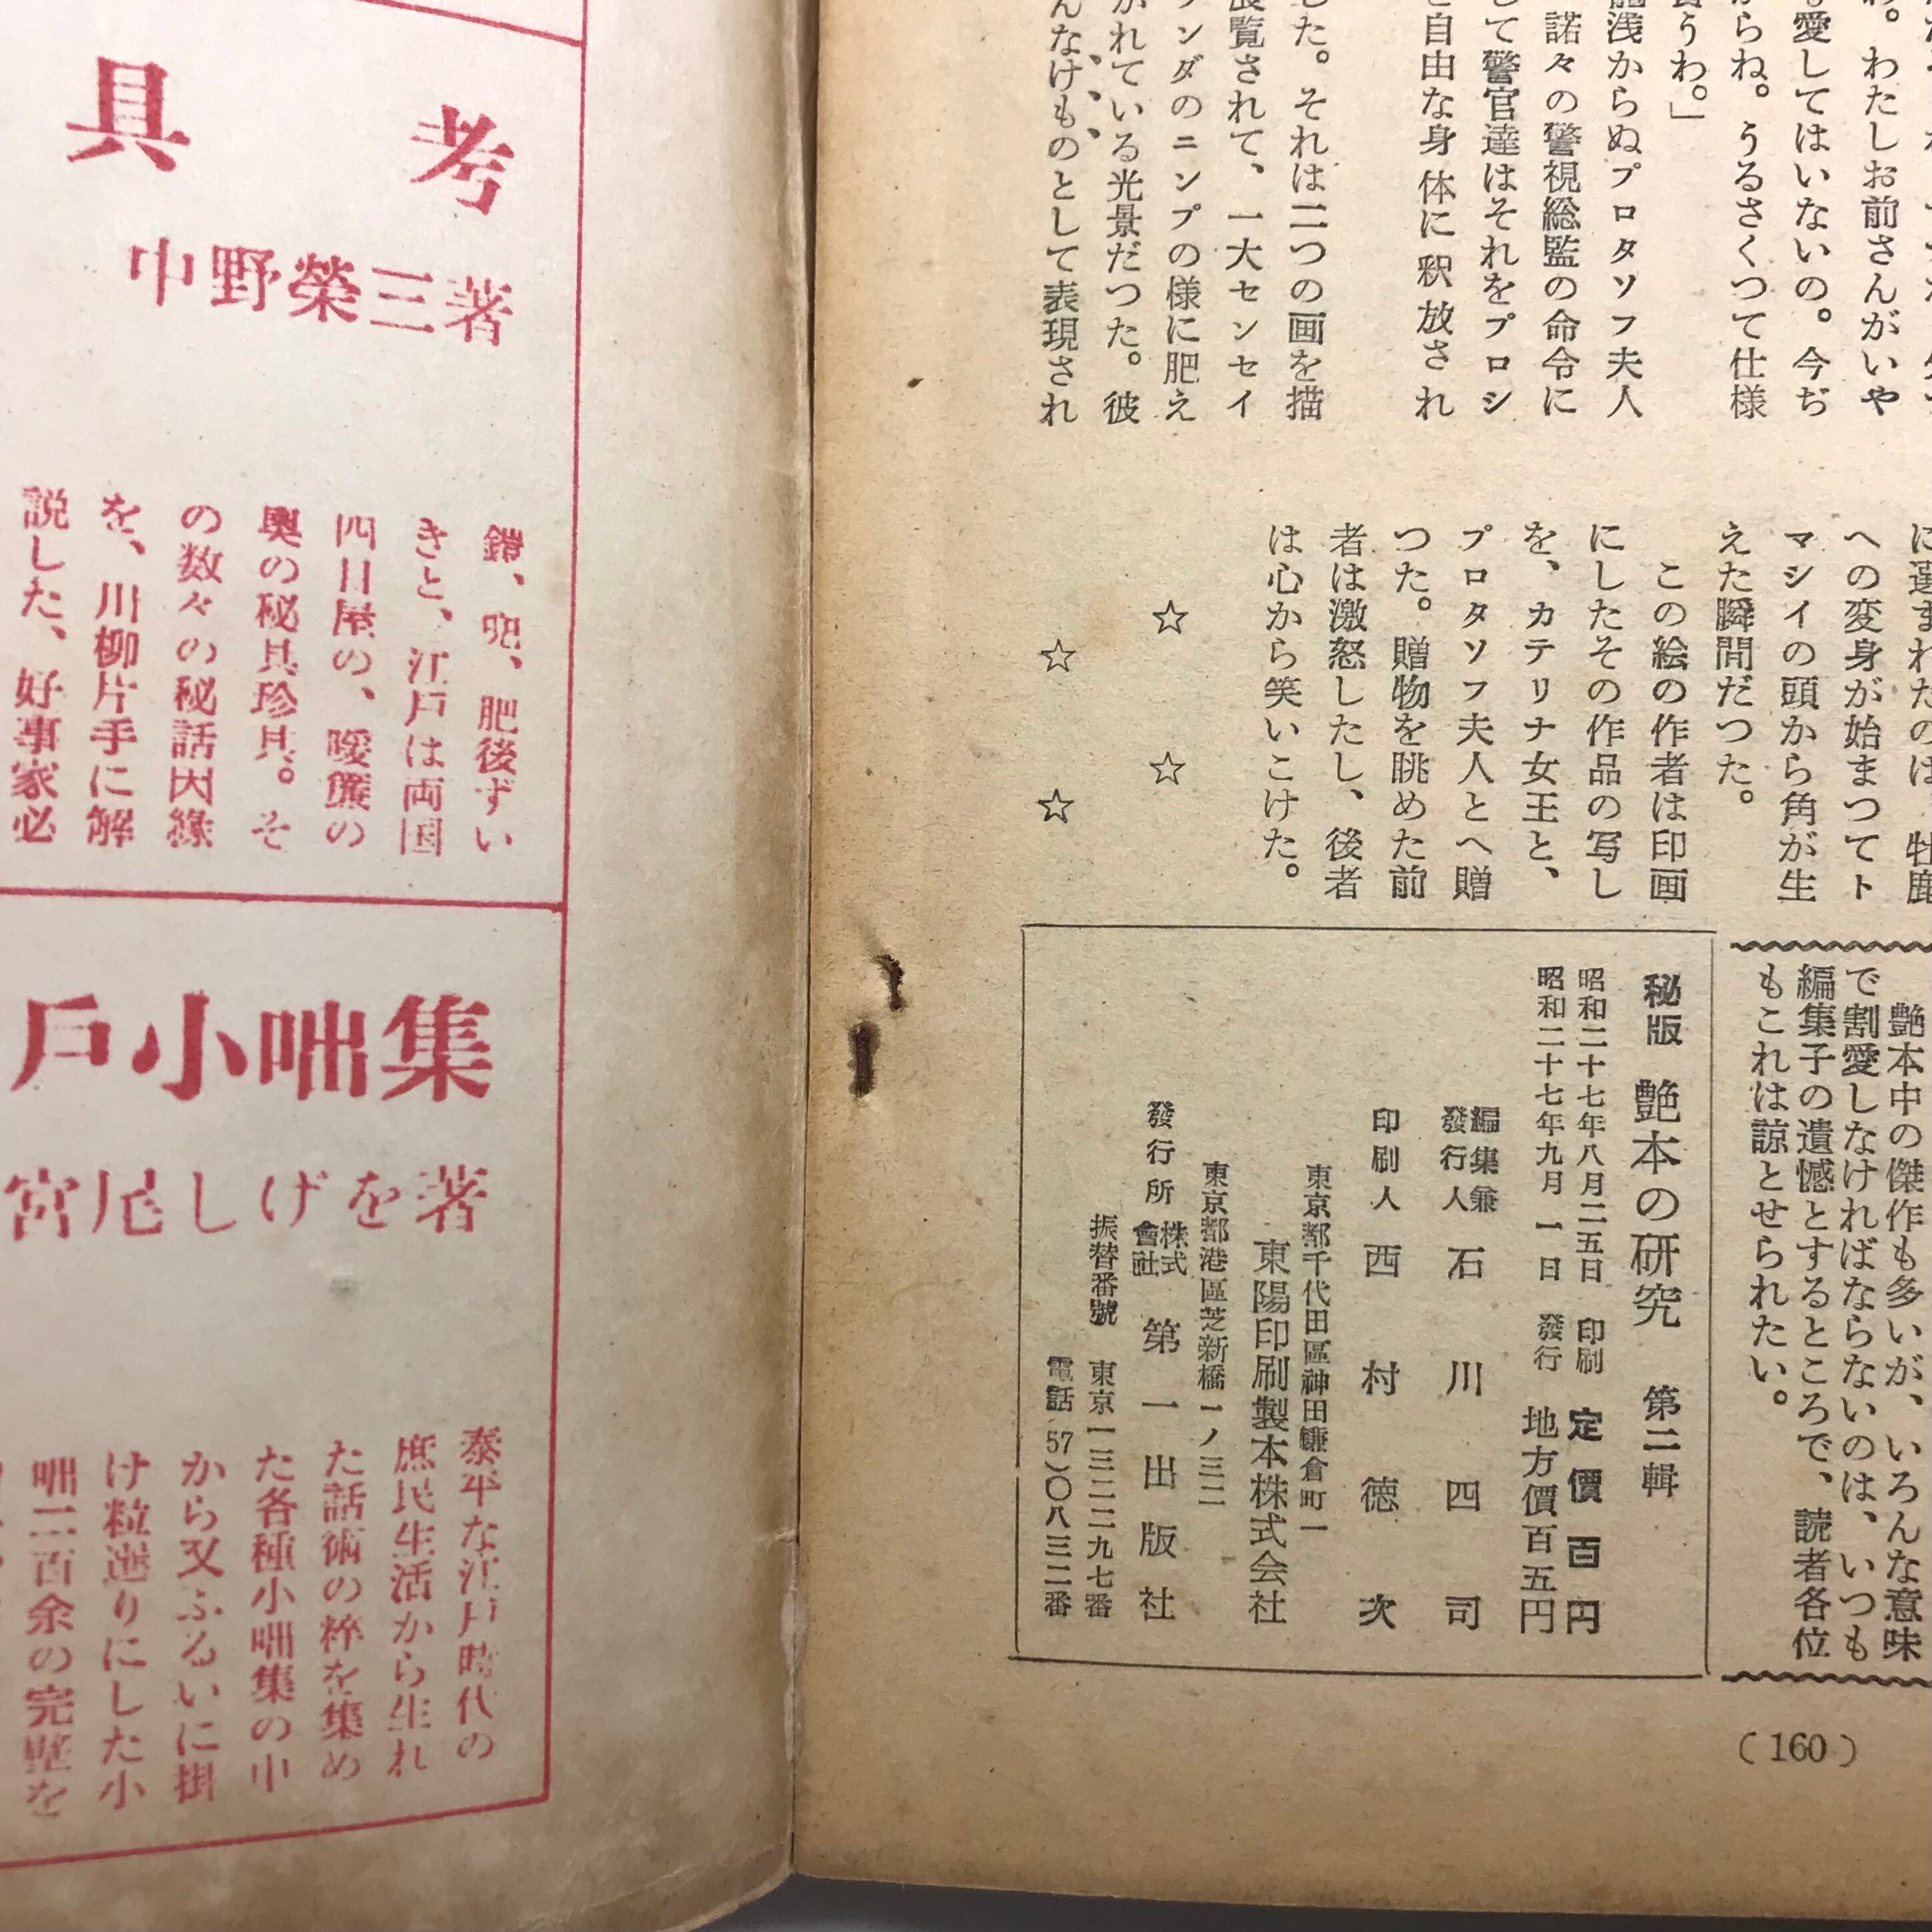 わ。わたしお前さんがいや
愛してはいないの。今ぢ
らね。うるさくつて仕様
うわ。」
浅からぬプロタソフ夫人
諾々の警視総監の命令に
して警官達はそれをプロシ
自由な身体に釈放され
した。それは二つの画を描
展覧されて、一大センセイ
ンダのニンプの様に肥え
かれている光景だつた。彼
んなけものとして表現され
に選まれたのは、牡鹿
への変身が始まつてト
マシイの頭から角が生
えた瞬間だつた。
この絵の作者は印画
にしたその作品の写し
を、カテリナ女王と、
プロタソフ夫人とへ贈
つた。贈物を眺めた前
者は激怒したし、後者
は心から笑いこけた。
☆　☆
☆　☆
艶本中の傑作も多いが、いろんな意味
で割愛しなければならないのは、いつも
編集子の遺憾とするところで、読者各位
もこれは諒とせられたい。
秘版　艶本の研究　第二輯
昭和二十七年八月二五日　印刷　定價百円
昭和二十七年九月一日　發行　地方價百五円
編集兼
發行人　石川四司
印刷人　西村徳次
東京都千代田區神田鎌倉町一
東陽印刷製本株式会社
東京都港區芝新橋一ノ三二
發行所　株式會社　第一出版社
振替番號　東京一三二二九七番
電話57)〇八三二番
(160)
具　考
中野榮三著
鎧、兜、肥後ずい
きと、江戸は両国
四目屋の、暖簾の
奥の秘具珍具。そ
の数々の秘話因縁
を、川柳片手に解
説した、好事家必
戸小咄集
宮尾しげを著
泰平な江戸時代の
庶民生活から生れ
た話術の粋を集め
た各種小咄集の中
から又ふるいに掛
け粒選りにした小
咄二百余の完璧を